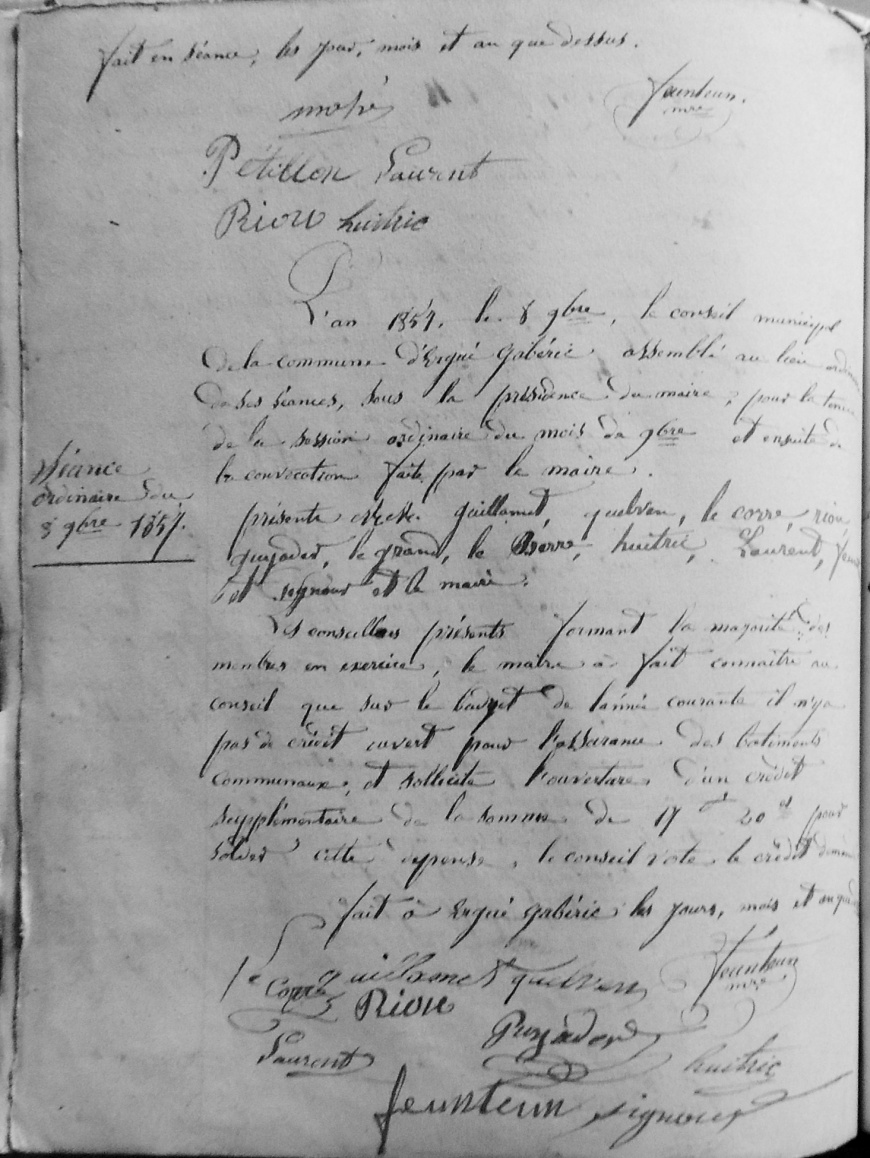 fait en séance, les jour, mois et an que dessus.
Feunteun
mre
Pétillon Laurent
Riou huitric
L'an 1857. le 8 9bre, le conseil municipal
de la commune d'Ergué gabéric assemblé au lieu ordinaire
de ses séances, sous la présidence du maire, pour la tenue
de la session ordinaire du mois de 9bre et ensuite de
la convocation faite par le maire.
Séance
ordinaire du
8 9bre 1857.
présents guillamet, quelven, le corre, riou,
puijader, le grand, le Berre, huitric, Laurent,
et signour et le maire.
Les conseillers présents formant la majorité des
menbres en exercice, le maire a fait connaitre au
conseil que sur le budget de l'année courante il n'y a
pas de crédit ouvert pour l'assurance des batiments
communaux, et sollicite l'ouverture d'un crédit
supplémentaire de la somme de 17 20 pour
solder cette depense, le conseil vote le crédit
fait à Ergué gabéric les jours, mois et an que
le Corre guillamet quelven Feunteun
mre
Riou
Puyador
Laurent huitric
feunteun signour